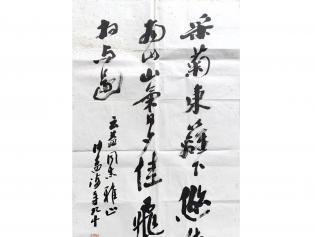 采菊東籬下悠然
南山山氣日夕佳飛
相与還
云花同志雅正
沙孟海年九十